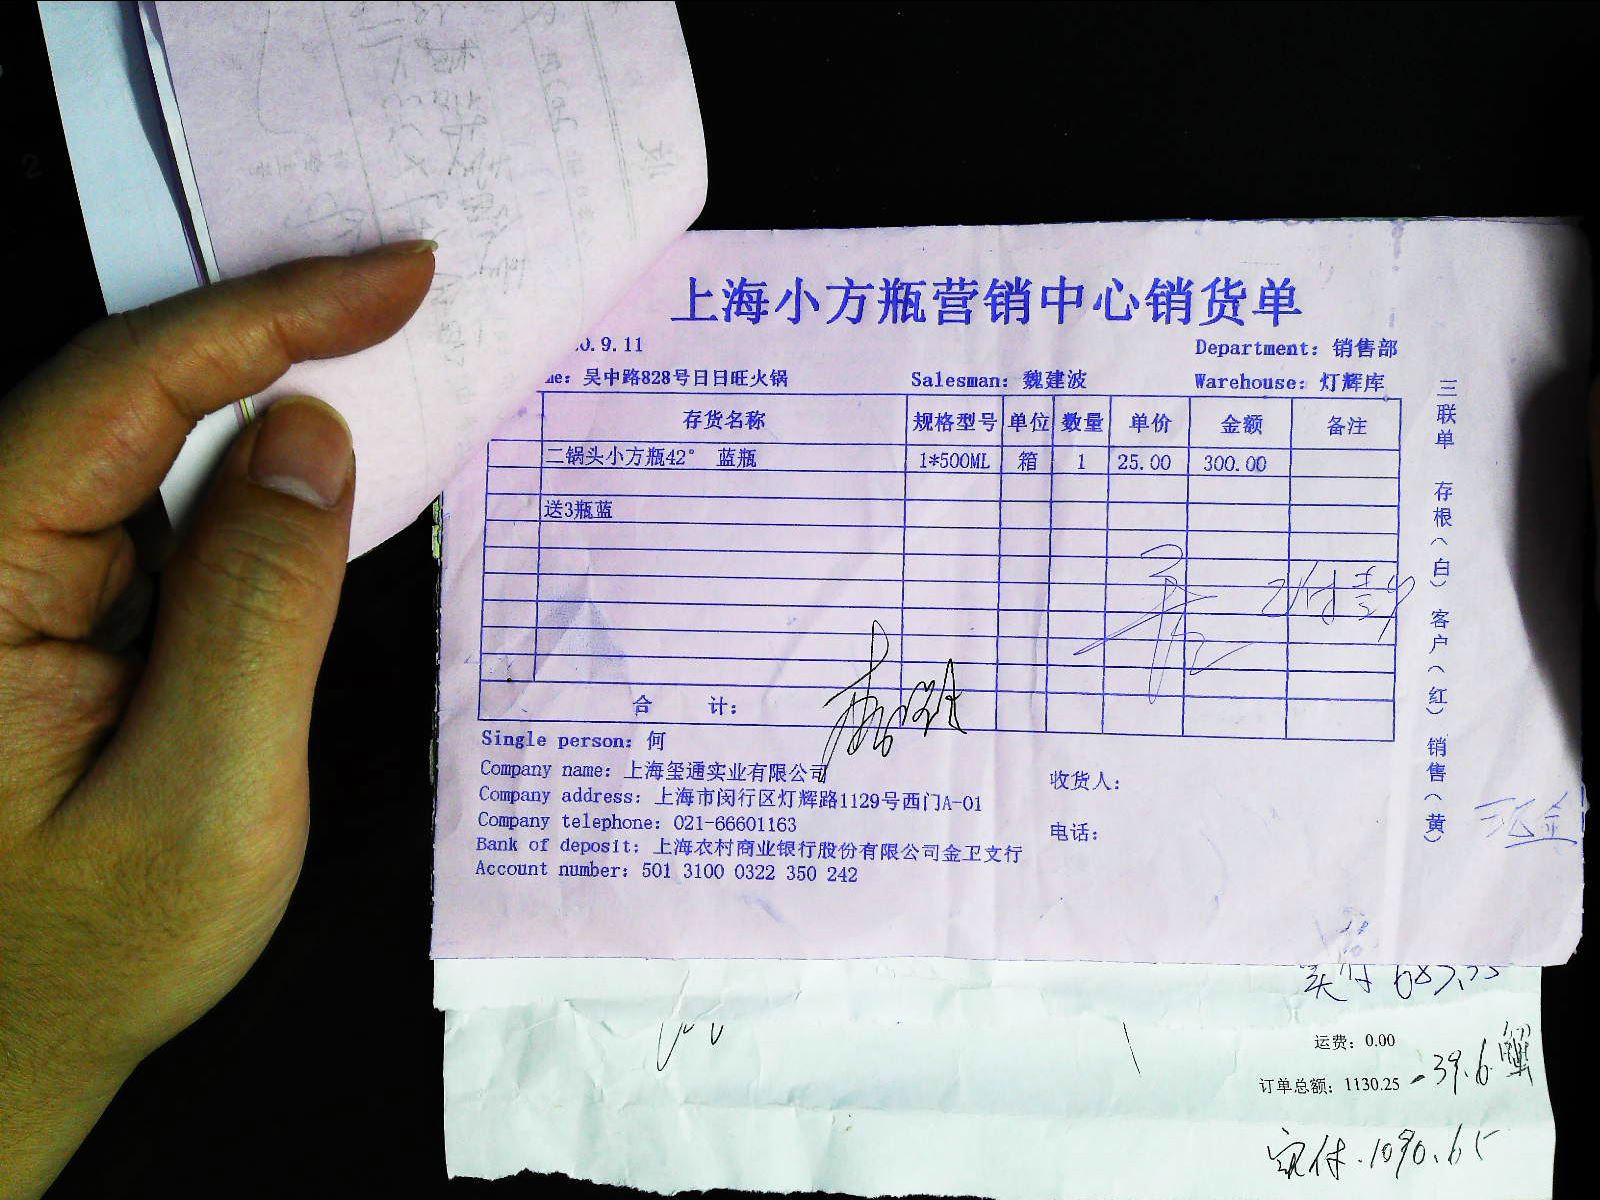 上海小方瓶营销中心销货单
0.9.11
Department: 销售部
吴中路828号日日旺火锅
Salesman: 魏建波
Warehouse: 灯辉库
存货名称 规格型号 单位 数量 单价 金额 备注
二锅头小方瓶42° 蓝瓶 1*500ML 箱 1 25.00 300.00
送3瓶蓝
已付款
合 计:
Single person: 何
Company name: 上海玺通实业有限公司
Company address: 上海市闵行区灯辉路1129号西门A-01
Company telephone: 021-66601163
Bank of deposit: 上海农村商业银行股份有限公司金卫支行
Account number: 501 3100 0322 350 242
收货人:
电话:
三联单 存根(白) 客户(红) 销售(黄)
现金
实付
运费: 0.00
订单总额: 1130.25 -39.6 蟹
实付.1090.65